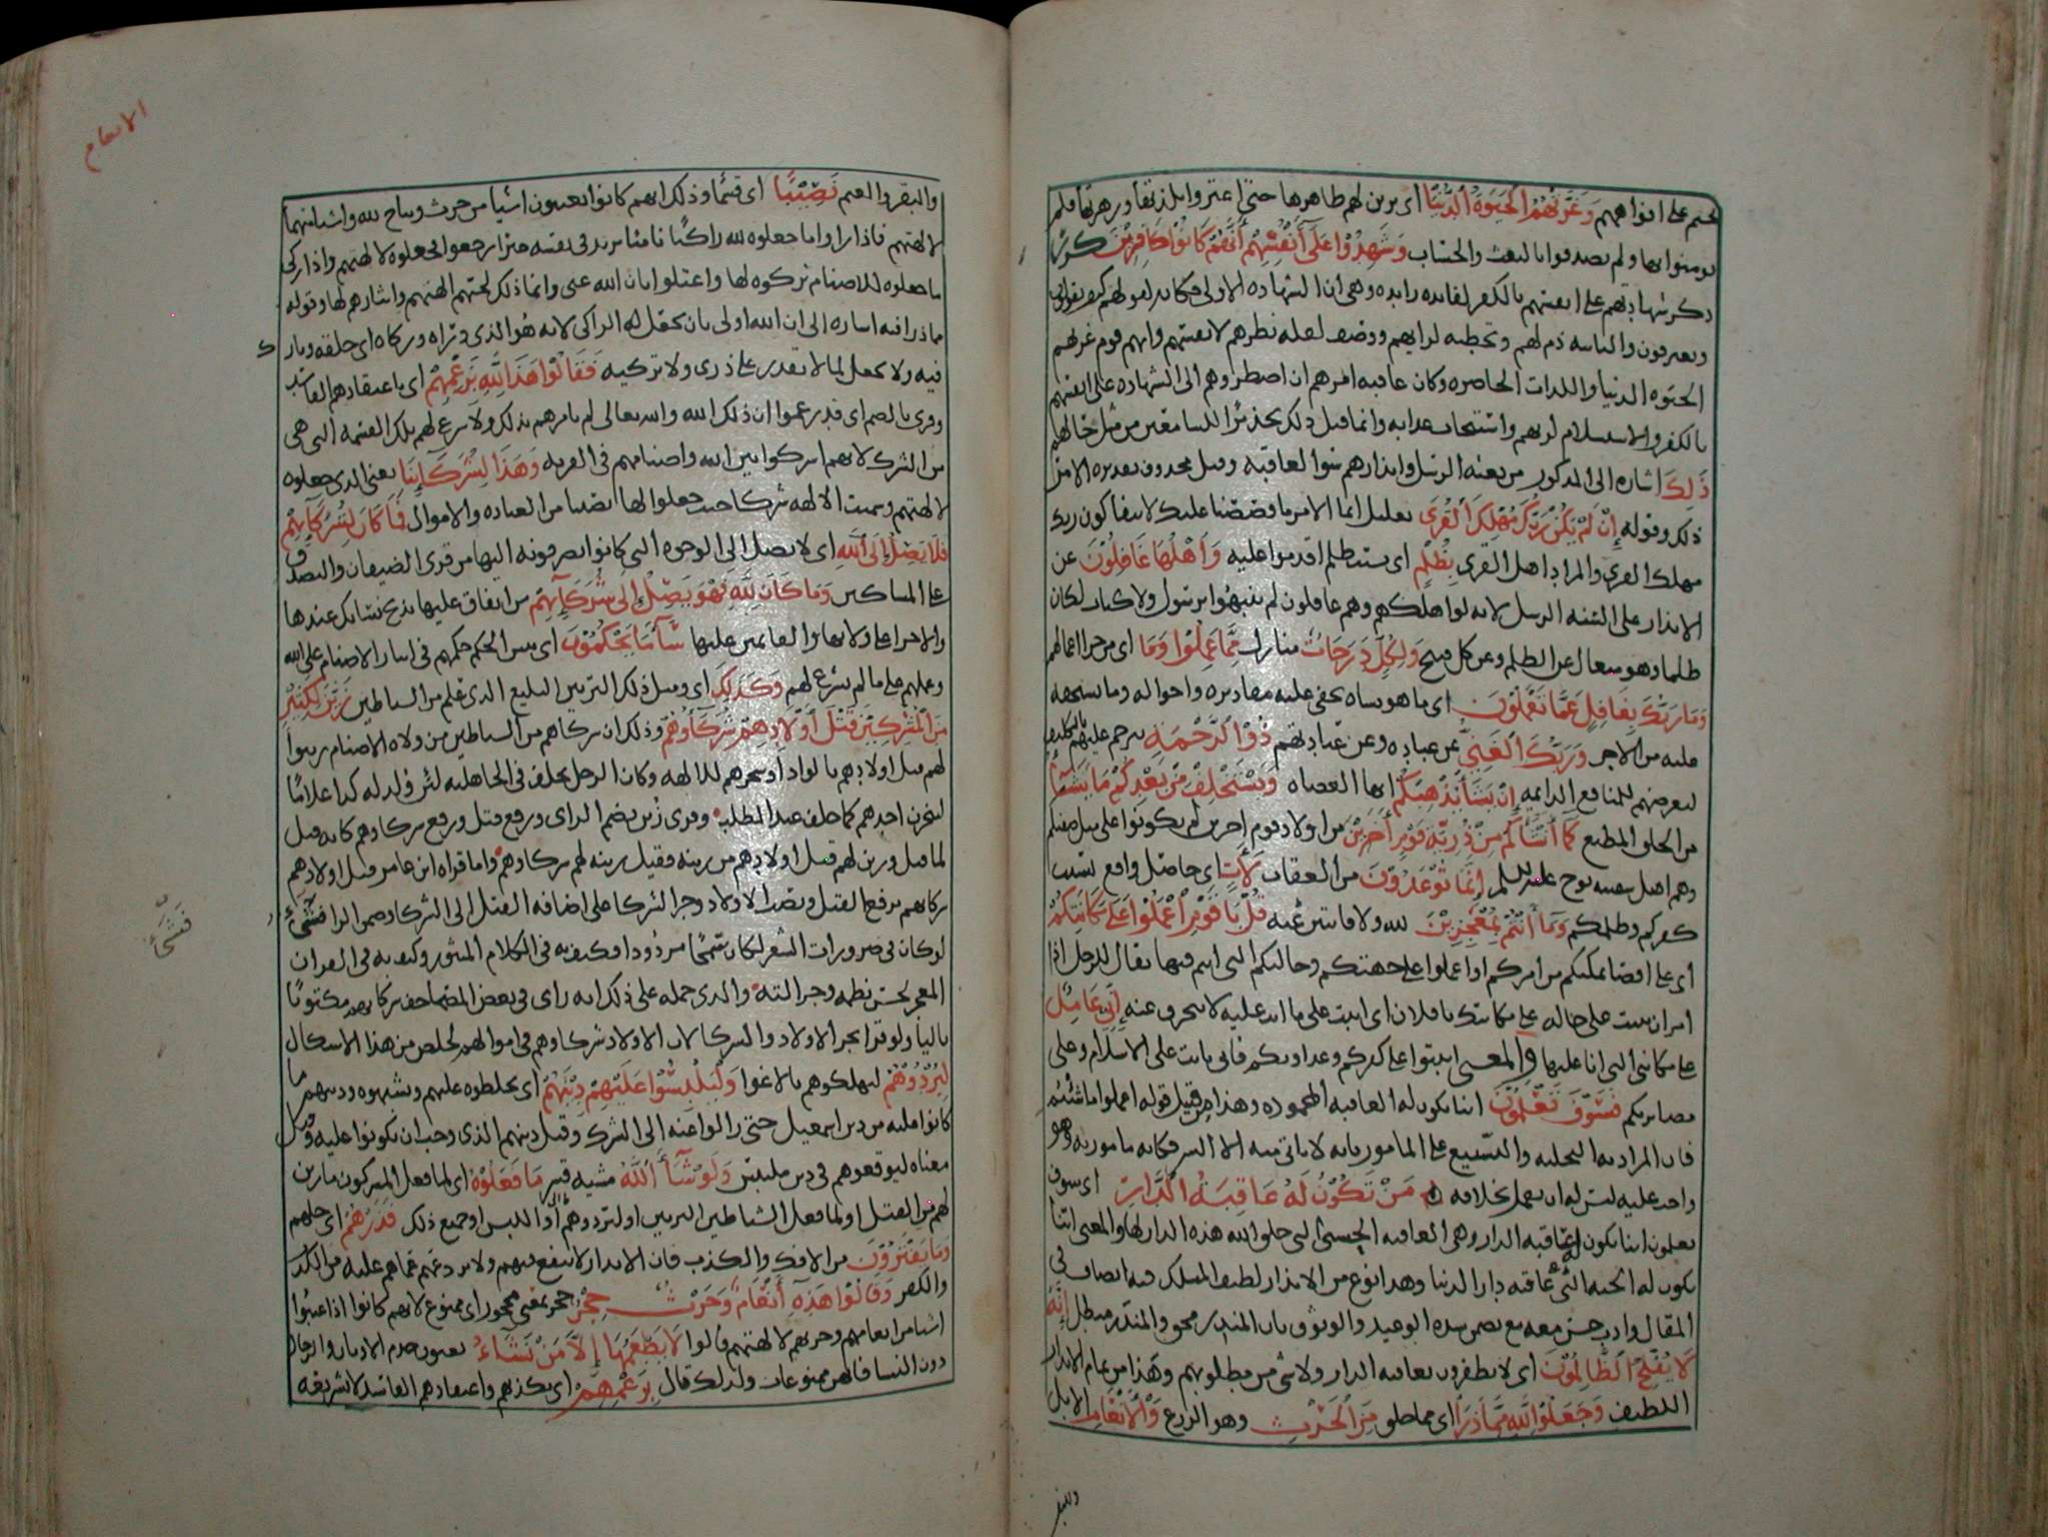 وَغَرَّتْهُمُ الْحَيَوةُ الدُّنْيَا اى زين لهم ظاهرها حتى اغتروا بلذتها وزهرتها فلم
يومنوا بها ولم يصدقوا بالبعث والحساب وَشَهِدُوا عَلَى أَنْفُسِهِمْ أَنَّهُمْ كَانُوا كَافِرِيْنَ كرر
ذكر شهادتهم على انفسهم بالكفر لفايده زايده وهى ان الشهاده الاولى حكايه لقولهم كيف يقولون
ويعترفون والثانيه ذم لهم وتخطيه لرايهم ووصف لقله نظرهم لانفسهم وانهم قوم غرتهم
الحيوه الدنيا واللذات الحاضره وكان عاقبه امرهم ان اضطروهم الى الشهاده على انفسهم
بالكفر والاستسلام لربهم واستيجاب عذابه وانما قيل ذلك تحذيرا للسامعين من مثل حالهم
ذَلِكَ اشاره الى المذكور من بعثه الرسل وانذارهم سوا العاقبه وقيل محذوف تقديره الامر
ذلك وقوله إِنْ لَمْ يَكُنْ رَبُّكَ مُهْلِكَ الْقُرَى تعليل اى الامر ما قصصنا عليك لانتفا كون ربك
مهلك القرى والمراد اهل القرى بِظُلْمٍ اى بسبب ظلم اقدموا عليه وَأَهْلُهَا غَافِلُوْنَ عن
الانذار على السنه الرسل لانه لو اهلكهم وهم غافلون لم ينبهوا برسول ولا كتاب لكان
ظلما وهو متعال عن الظلم وعن كل قبيح وَلِكُلٍّ دَرَجَاتٌ منازل مِمَّا عَمِلُوْا وَمَا اى من جزا اعمالهم
وَمَا رَبُّكَ بِغَافِلٍ عَمَّا يَعْمَلُوْنَ اى ما هو بساه يخفى عليه مقاديره واحواله وما يستحقه
عليه من الاجر وَرَبُّكَ الْغَنِيُّ عن عباده وعن عبادتهم ذُوْ الرَّحْمَةِ يترحم عليهم بالتكليف
ليعرضهم للمنافع الدايمه إِنْ يَشَأْ يُذْهِبْكُمْ ايها العصاه وَيَسْتَخْلِفْ مِنْ بَعْدِكُمْ مَا يَشَآءُ
من الخلق المطيع كَمَا أَنْشَأَكُمْ مِنْ ذُرِّيَّةِ قَوْمٍ أَخَرِيْنَ من اولاد قوم اخرين لم يكونوا على مثل صفتكم
وهم اهل سفينه نوح عليه السلم إِنَّمَا تُوْعَدُوْنَ من العقاب لَأَتٍ اى حاصل واقع بسبب
كفركم وظلمكم وَمَا أَنْتُمْ بِمُعْجِزِيْنَ لله ولا فايتين عنه قُلْ يَا قَوْمِ اعْمَلُوْا عَلَى مَكَانَتِكُمْ
اى على اقصا تمكنكم من امركم او اعملوا على جهتكم وحالتكم التى انتم فيها يقال للرجل اذا
امر ان يثبت على حاله على مكانتك يا فلان اى اثبت على ما انت عليه لا تنحرف عنه إِنِّى عَامِلٌ
على مكانتى التى انا عليها والمعنى اثبتوا على كفركم وعداوتكم فانى ثابت على الاسلام وعلى
مصابرتكم فَسَوْفَ تَعْلَمُوْنَ اينا يكون له العاقبه المحموده وهذا من قبيل قوله اعملوا ما شئتم
فان المراد به التخليه والتسجيع على المامور بانه لا ياتى منه الا الشر فكانه مامور به وهو
واجب عليه ليس له ان يعمل بخلافه مَنْ تَكُوْنُ لَهُ عَاقِبَةُ الدَّارِ اى سوف
تعلمون اينا يكون له عاقبه الدار وهى العاقبه الحسنى التى خلق الله هذه الدار لها والمعنى اينا
يكون له الجنه التى عاقبه دار الدنيا وهذا نوع من الانذار لطيف المسلك فيه انصاف فى
المقال وادب حسن معه مع تضمن شده الوعيد والوثوق بان المنذر محق والمنذر مبطل إِنَّهُ
لَا يُفْلِحُ الظَّالِمُوْنَ اى لا يظفرون بعاقبه الدار ولا شى من مطلوبهم وهذا من تمام الانذار
اللطيف وَجَعَلُوْا لِلَّهِ مِمَّا ذَرَأَ اى مما خلق مِنَ الْحَرْثِ وهو الزرع وَالْأَنْعَامِ الابل
والبقر
الانعام
والبقر والغنم نَصِيْبًا اى قسما وذلك انهم كانوا يعينون اشيا من حرث ونتاج لله واشيا منهما
لالهتهم فاذا راوا ما جعلوه لله زاكيا ناميا يزيد فى نفسه خيرا رجعوا فجعلوه لالهتهم واذا زكى
ما جعلوه للاصنام تركوه لها واعتلوا بان الله غنى وانما ذلك لحبهم الهتهم وايثارهم لها وقوله
مما ذرا فيه اشاره الى ان الله اولى بان يجعل له الزاكى لانه هو الذى ذراه وزكاه اى خلقه وبارك
فيه ولا يجعل لما لا يقدر على ذرى ولا تزكيه فَقَالُوْا هَذَا لِلَّهِ بِزَعْمِهِمْ اى باعتقادهم الفاسد
وقرى بالضم اى قد زعموا ان ذلك لله والله تعالى لم يامرهم بذلك ولا شرع لهم تلك القسمه التى هى
من الشرك لانهم اشركوا بين الله واصنامهم فى القربه وَهَذَا لِشُرَكَآئِنَا يعنى الذى جعلوه
لالهتهم وسميت الالهه شركا حيث جعلوا لها نصيبا من العباده والاموال فَمَا كَانَ لِشُرَكَآئِهِمْ
فَلَا يَصِلُ إِلَى اللَّهِ اى لا يصل الى الوجوه التى كانوا يصرفونه اليها من قرى الضيفان والتصدق
على المساكين وَمَا كَانَ لِلَّهِ فَهُوَ يَصِلُ إِلَى شُرَكَآئِهِمْ من انفاق عليها بذبح نسائك عندها
والاجرا على القايمين عليها سَآءَ مَا يَحْكُمُوْنَ اى بيس الحكم حكمهم فى ايثار الاصنام على الله
وعملهم على ما لم يشرع لهم وَكَذَلِكَ اى ومثل ذلك التزيين البليغ الذى علم من الشياطين زَيَّنَ لِكَثِيْرٍ
مِنَ الْمُشْرِكِيْنَ قَتْلَ أَوْلَادِهِمْ شُرَكَآؤُهُمْ وذلك ان شركاهم من الشياطين من ولاه الاصنام زينوا
لهم قتل اولادهم بالواد او بنحرهم للالهه وكان الرجل يحلف فى الجاهليه لئن ولد له كذا غلامًا
لينحرن احدهم كما حلف عبد المطلب وقرى زُيّن بضم الزاى ورفع قتل ورفع شركاوهم كانه قيل
لما قيل زين لهم قتل اولادهم من زينه فقيل زينه لهم شركاوهم واما قراه ابن عامر قتل اولادهم
شركايهم برفع القتل ونصب الاولاد وجر الشركا على اضافه القتل الى الشركا فشىء
لو كان فى ضرورات الشعر لكان سمجًا مردودا فكيف به فى الكلام المنثور وكيف به فى القران
المعجز بحسن نظمه وجزالته والذى حمله على ذلك انه راى فى بعض المصاحف شركايهم مكتوبًا
باليا ولو قرا بجر الاولاد والشركا لان الاولاد شركاوهم فى اموالهم لخلص من هذا الاشكال
لِيُرْدُوْهُمْ ليهلكوهم بالاغوا وَلِيَلْبِسُوْا عَلَيْهِمْ دِيْنَهُمْ اى يخلطوه عليهم ويشبهوه ودينهم ما
كانوا عليه من دين اسمعيل حتى زالوا عنه الى الشرك وقيل دينهم الذى وجب ان يكونوا عليه وقيل
معناه ليوقعوهم فى دين ملتبس وَلَوْ شَآءَ اللَّهُ مشيه قسر مَا فَعَلُوْهُ اى لما فعل المشركون ما زين
لهم من القتل او لما فعل الشياطين التزيين او لتردوهم او اللبس او جميع ذلك فَذَرْهُمْ اى خلهم
وَمَا يَفْتَرُوْنَ من الافك والكذب فان الانذار لا ينفع فيهم ولا يردعهم عما هم عليه من الكذب
والكفر وَقَالُوْا هَذِهِ أَنْعَامٌ وَحَرْثٌ حِجْرٌ حجر بمعنى محجور اى ممنوع لانهم كانوا اذا عينوا
اشيا من انعامهم وحرثهم لالهتهم قالوا لَا يَطْعَمُهَا إِلَّا مَنْ نَشَاءُ يعنون خدم الاوثان والرجال
دون النسا فانهن ممنوعات ولذلك قال بِزَعْمِهِمْ اى بكذبهم واعتقادهم الفاسد لا بشريعه
فَشَىْءٌ